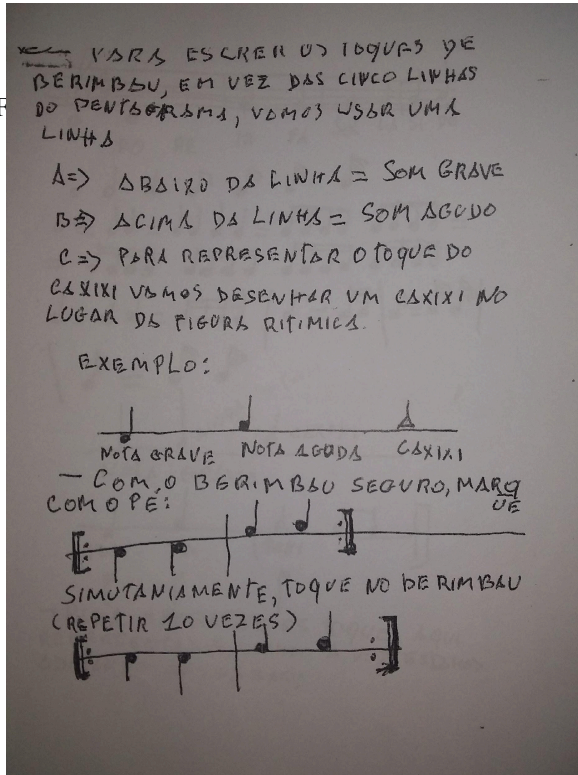 PARA ESCRER OS TOQUES DE
BERIMBAU, EM VEZ DAS CINCO LINHAS
DO PENTAGRAMA, VAMOS USAR UMA
LINHA
A=> ABAIXO DA LINHA = SOM GRAVE
B=> ACIMA DA LINHA = SOM AGUDO
C=> PARA REPRESENTAR O TOQUE DO
CAXIXI VAMOS DESENHAR UM CAXIXI NO
LUGAR DA FIGURA RITIMICA.
EXEMPLO:
NOTA GRAVE NOTA AGUDA CAXIXI
— COM O BERIMBAU SEGURO, MARQ
UE
COM O PÉ:
SIMUTANIAMENTE, TOQUE NO BERIMBAU
(REPETIR 10 VEZES)